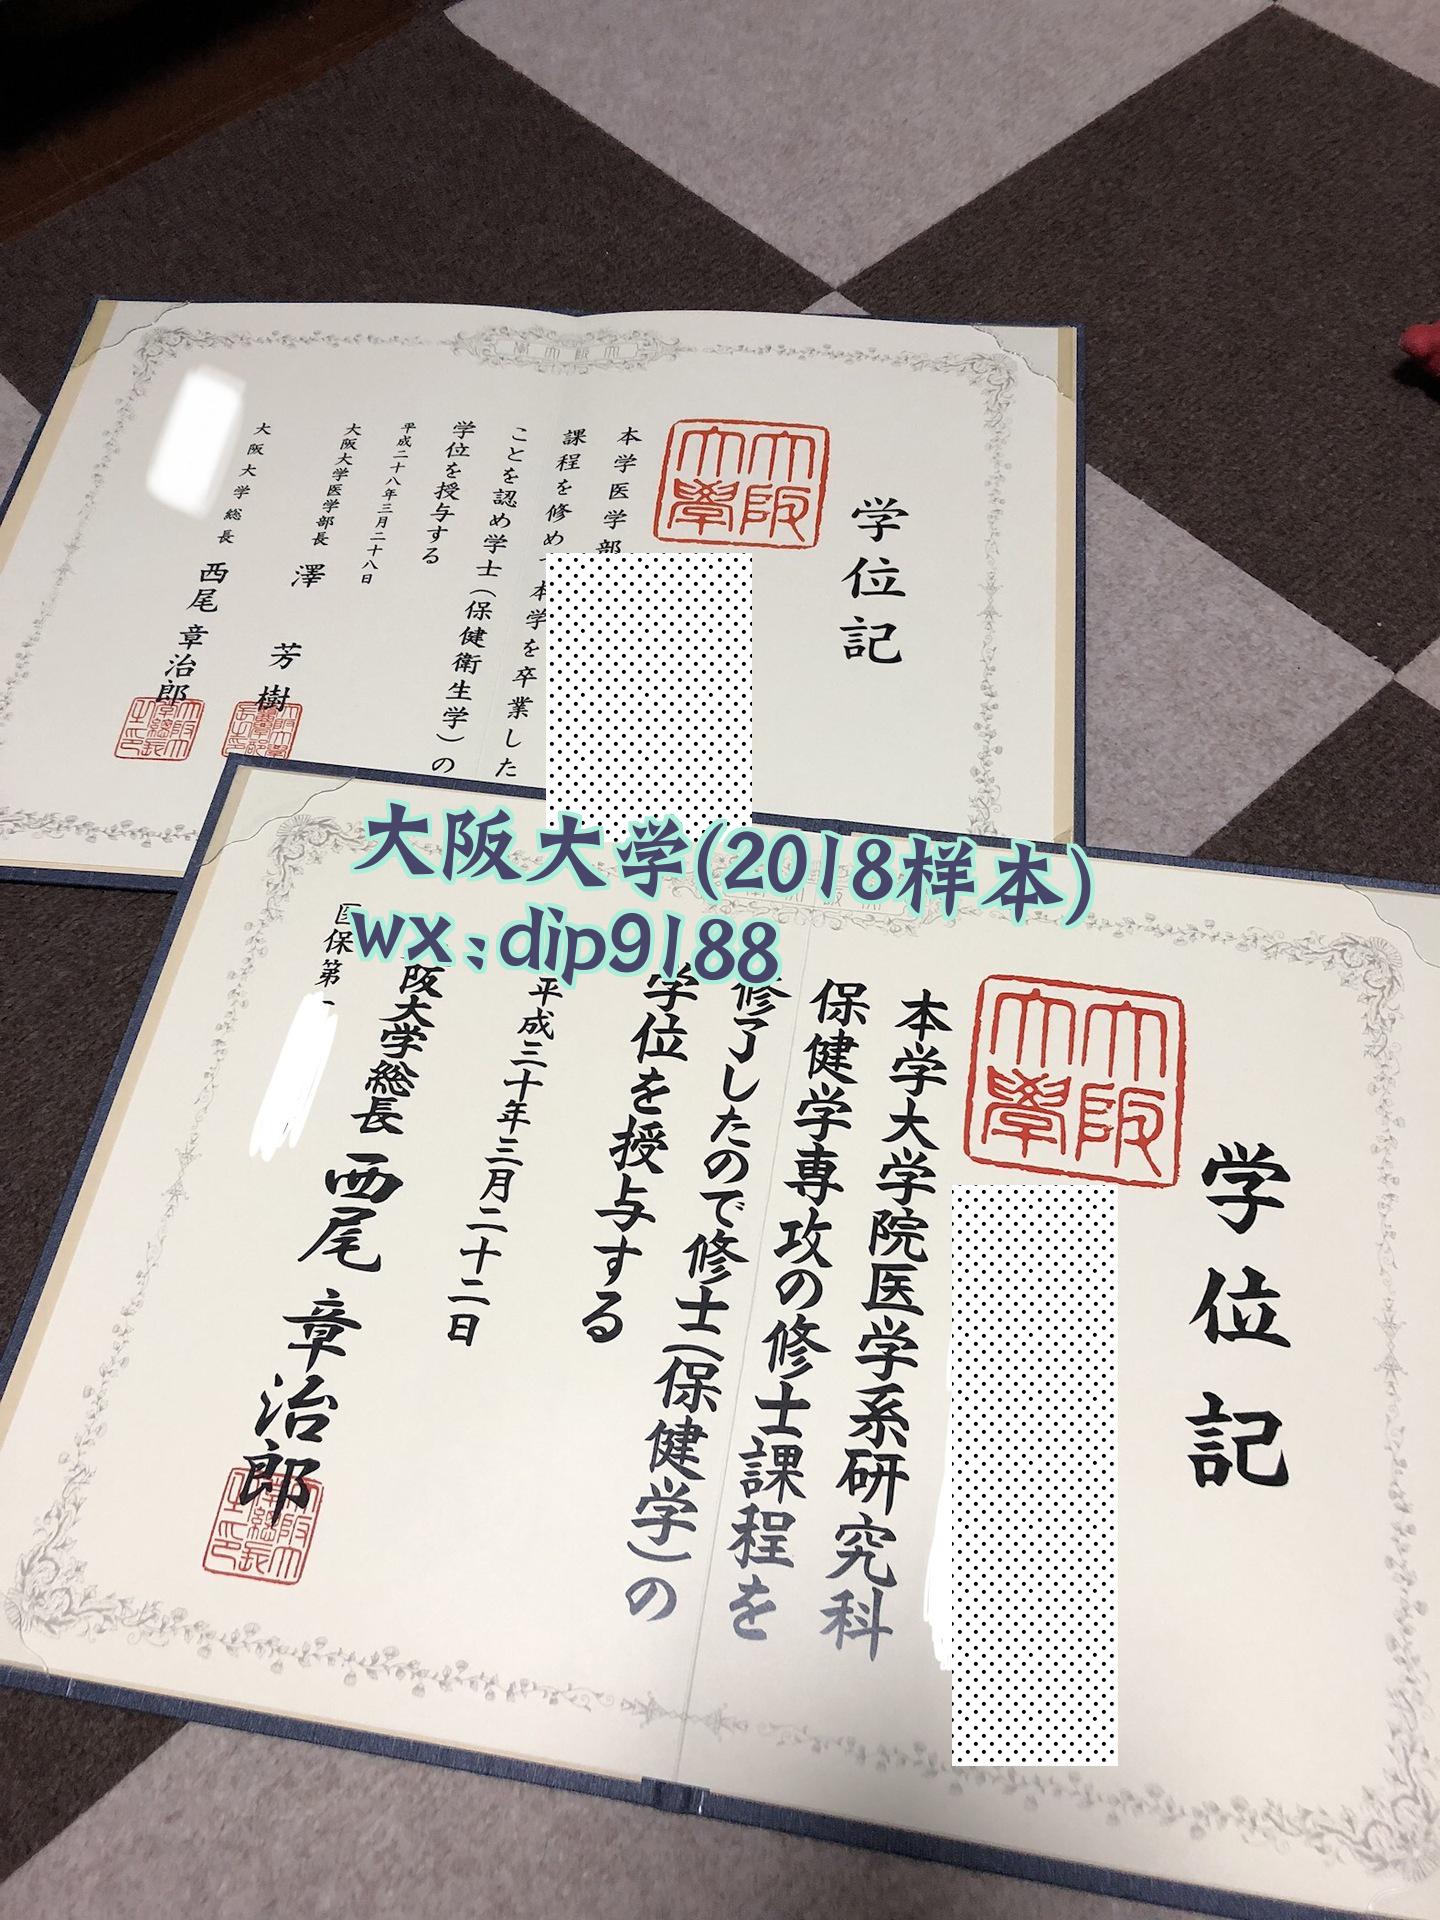 学位記
大阪大学
本学医学部
課程を修めて本学を卒業した
ことを認め学士(保健衛生学)の
学位を授与する
平成二十八年三月二十八日
大阪大学医学部長 澤 芳樹
大阪大学総長 西尾章治郎
大阪大学(2018样本)
wx:dip9188
学位記
大阪大学
本学大学院医学系研究科
保健学専攻の修士課程を
修了したので修士(保健学)の
学位を授与する
平成三十年三月二十二日
阪大学総長 西尾章治郎
医保第